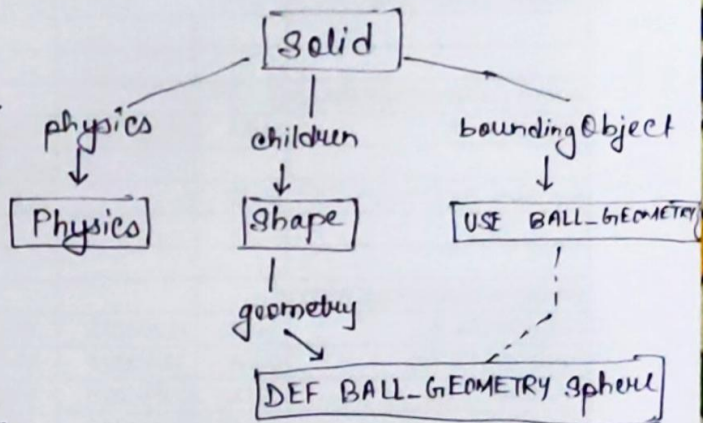 Solid
physics children boundingObject
Physics Shape USE BALL_GEOMETRY
geometry
DEF BALL_GEOMETRY Sphere